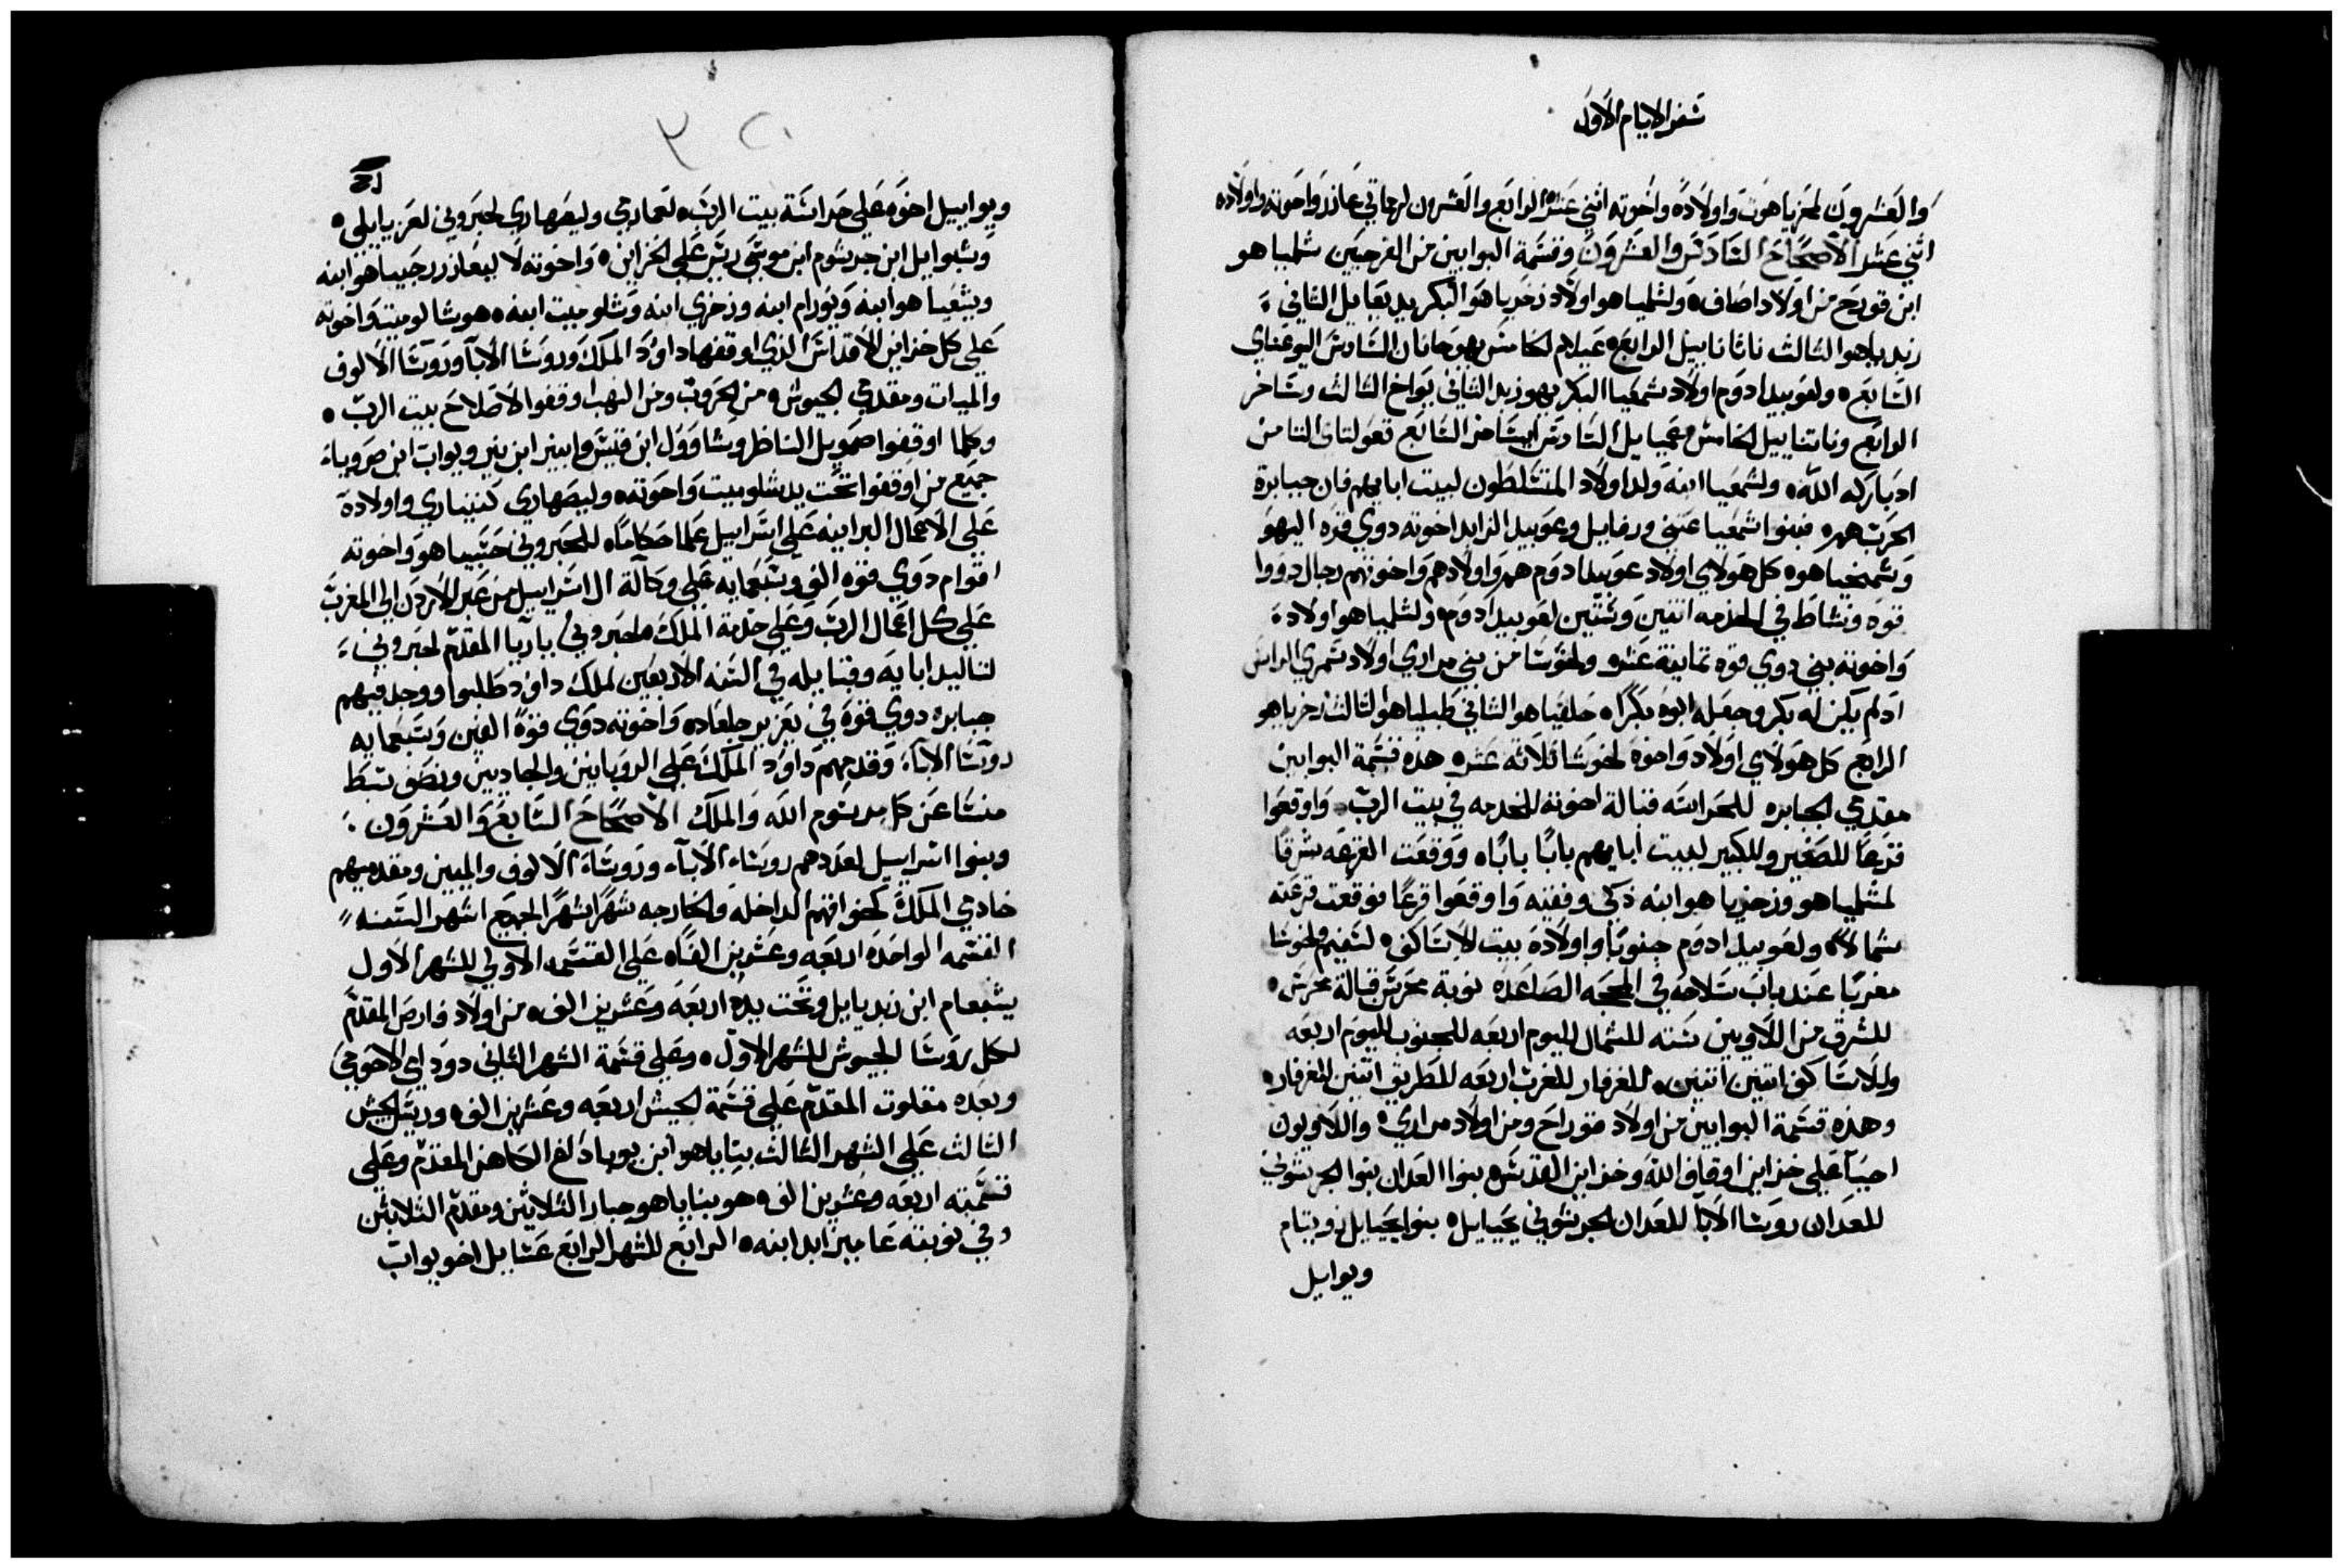 سفر الايام الاول
والعشرون لمحزياهوت واولاده واخوته اثني عشر الرابع والعشرون لرجاتي عاذر واخوته واولاده
اثني عشر الاصحاح السادس والعشرون وقسمة البوابين من القرحيين شلميا هو
ابن قورح من اولاد اصاف ولشلمياهو اولاد زخريا هو البكر يديعايل الثاني
زبدياهو الثالث ناثانابيل الرابع عيلام الخامس يهوحانان السادس اليوعيناي
السابع ولعوبيد ادوم اولاد شمعيا البكر يهوزبد الثاني يواخ الثالث وساخر
الرابع وناتنابيل الخامس عميايل السادس ايساخر السابع فعولتاي الثامن
اذ باركه الله ولشمعيا ابنه ولد اولاد المتسلطون لبيت ابايهم فان جبابرة
الحرب هم فبنوا شمعيا عتني ورفايل وعوبيد الزابد اخوته دوي قوه اليهو
وسمخياهو كل هولاي اولاد عوبيد ادوم هم واولادهم واخوتهم رجال دووا
قوه ونشاط في الخدمه اثنين وستين لعوبيد ادوم ولشلمياهو اولاد
واخوته بني دوي قوه تمانية عشر ولحوسا من بني مراري اولاد شمري الراس
اذ لم يكن له بكر وجعله ابوه بكرا حلقياهو الثاني طبلياهو الثالث زخرياهو
الرابع كل هولاي اولاد واخوة لحوسا ثلاثه عشر هذه قسمة البوابين
مقدمي الجبابره للحراسه قبالة اخوته للخدمه في بيت الرب واوقعوا
قرعا للصغير وللكبير لبيت ابايهم بابا بابا ووقعت القرعه شرقا
لمشلمياهو وزخرياهو ابنه ذكي وفقيه واوقعوا قرعا فوقعت قرعته
شمالا ولعوبيد ادوم جنوبا واولاده بيت الاساكف لشفيم ولحوسا
مغربا عند باب سلاحه في المحجه الصاعده نوبة محرس قبالة محرس
للشرق من اللاويين سته للشمال لليوم اربعه للجنوب لليوم اربعه
وللاساكف اثنين اثنين للغرفار للغرب اربعه للطريق اثنين للغرفار
وهذه قسمة البوابين من اولاد قوراح ومن اولاد مراري واللاويون
احيا علي خزاين اوقاف الله وخزاين القديس بنوا العدان بنوا الجرشوني
للعدان روسا الابا للعدان الجرشوني يحيايل بنوا يحيايل زويتام
ويوايل
ويوابيل اخوه علي حراسة بيت الرب لعمارمي وليصهاري لحبروني لعزيايلي
وشبوايل ابن جرشوم ابن موسي ريس علي الخزاين واخوته لاليعازر رحبياهو ابنه
ويشعياهو ابنه ويورام ابنه وزخري ابنه وشلوميت ابنه هوشالوميت واخوته
علي كل خزاين الاقداس الذي اوقفها داوود الملك وروسا الابا وروسا الالوف
والميات ومقدمي الجيوش من الحروب ومن النهب اوقفوا لاصلاح بيت الرب
وكلما اوقفوا صمويل الناظر وشاوول ابن قيس وابينر ابن نير ويواب ابن صرويا
جميع من اوقفوا تحت يد شلوميت واخوته وليصهاري كننياري واولاده
علي الاعمال البرانيه علي اسراييل عمالا حكاما للحبروني حشبياهو واخوته
اقوام دوي قوه الف وسبعمايه علي وكالة ال اسراييل من عبر الاردن الي المغرب
علي كل اعمال الرب وعلي خدمة الملك ملحبروني ياريا المقدم لحبروني
لتاليد ابايه وقبايله في السنه الاربعين لملك داود طلبوا ووجد فيهم
جبابره دوي قوة في يعزير جلعاد واخوته دوي قوة الفين وسبعمايه
روسا الابا وقدمهم داود الملك علي الروبانين والجاديين ونصف سبط
منسا عن كل مرسوم الله والملك الاصحاح السابع والعشرون
وبنوا اسراييل لعددهم روساء الابآء وروساء الالوف والميين ومقدميهم
خادمي الملك لنحو اقهم الداخله والخارجه شهرا شهرا لجميع اشهر السنه
القسمه الواحده اربعه وعشرين الفا علي القسمه الاولي للشهر الاول
يشبعام ابن زبديايل وتحت يده اربعه وعشرين الف من اولاد فارص المقدم
لكل روسا الجيوش للشهر الاول وعلي قسمة الشهر الثاني دوداي الاحوحي
وبعده مقلوت المقدم علي قسمة الجيش اربعه وعشرين الف وريس الجيش
الثالث علي الشهر الثالث بناياهو ابن يوياداع الكاهن المقدم وعلي
قسمته اربعه وعشرين الف هو بناياهو جبار الثلاثين ومقدم الثلاثين
وفي نوبته عاميزابد ابنه الرابع للشهر الرابع عسايل اخو يواب